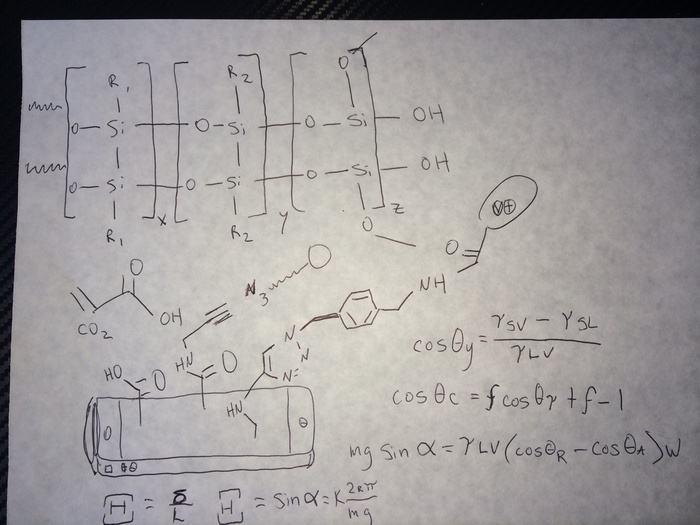 R1 R2 O
O-Si O-Si O-Si OH
O-Si O-Si O-Si OH
x y z
R1 R2 O
V⊕
O
NH
O
OH
CO2
N3
HN O
HO O
N N N=
HN
O ⊖
⊕⊖
cosθy = γSV - γSL / γLV
cosθc = f cosθγ + f - 1
mg sin α = γLV (cosθR - cosθA) w
[H] = δ/L [H] = sin α = K 2Rπ/mg